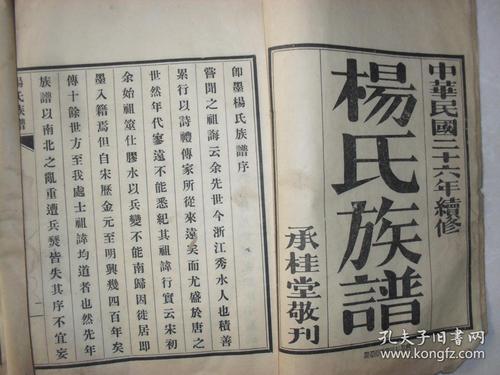 中華民國二十六年續修
楊氏族譜
承桂堂敬刊
即墨楊氏族譜序
嘗聞之祖誨云余先世今浙江秀水人也積善
累行以詩禮傳家所從來遠矣而尤盛於唐之
世然年代寥遠不能悉紀其祖諱行實云宋初
余始祖簹仕膠水以兵變不能南歸因徙居即
墨入籍焉但自宋歷金元至明興幾四百年矣
傳十餘世方至我處士祖諱均道者也然先年
族譜以南北之亂重遭兵燹皆失其序不宜妄
楊氏族譜
一
孔夫子旧书网
www.kongfz.com